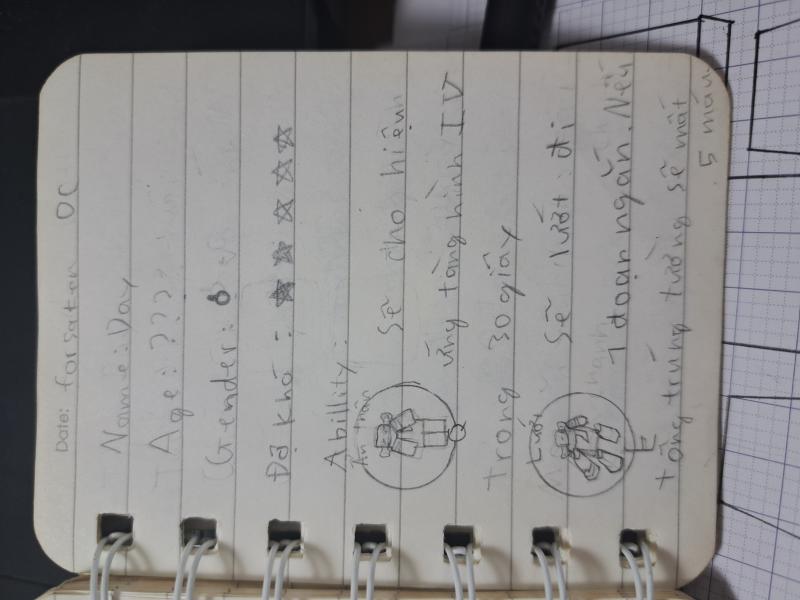 Date: forsaken OC
Name: Day
Age: ????
Gender:
Độ khó: ★★☆☆☆
Abillity:
Ẩn thân
Sẽ cho hiệu
ứng tàng hình IV
Q
trong 30 giây
Lướt
Sẽ lướt đi
1 đoạn ngắn. Nếu
E
tông trúng tường sẽ mất
5 máu